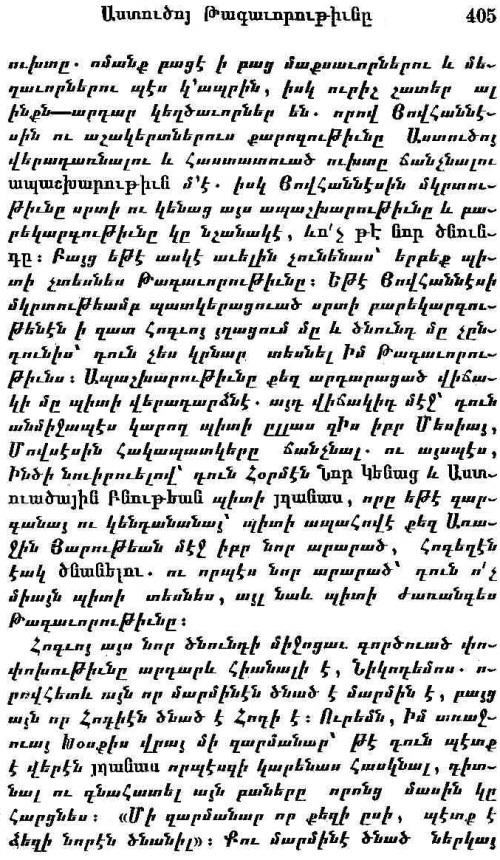 Աստուծոյ Թագաւորութիւնը 405
ուխտը. ոմանք բացէ ի բաց մաքսաւորներու և մե-
ղաւորներու պէս կ՚ապրին, իսկ ուրիշ շատեր ալ
ինքն—արդար կեղծաւորներ են. որով Յովհաննէ-
սին ու աշակերտներուս քարոզութիւնը Աստուծոյ
վերադառնալու և Հաստատուած ուխտը ճանչնալու
ապաշխարութիւն մ՚է. իսկ Յովհաննէսին մկրտու-
թիւնը սրտի ու կենաց այս ապաշխարութիւնը և բա-
րեկարգութիւնը կը նշանակէ, ևո՛չ թէ նոր ծնուն-
դը։ Բայց եթէ ասկէ աւելին չունենաս՝ երբեք պի-
տի չտեսնես Թագաւորութիւնը։ Եթէ Յովհաննէսի
մկրտութեամբ պատկերացուած սրտի բարեկարգու-
թենէն ի զատ Հոգւոյ յղացում մը և ծնունդ մը չըն-
դունիս՝ դուն չես կրնար տեսնել Իմ Թագաւորու-
թիւնս։ Ապաշխարութիւնը քեզ արդարացած վիճա-
կի մը պիտի վերադարձնէ. այդ վիճակիդ մէջ՝ դուն
անմիջապէս կարող պիտի ըլլաս զիս իբր Մեսիայ,
Մովսէսին Հակապատկերը ճանչնալ. ու այսպէս,
Ինծի նուիրուելով՝ դուն Հօրմէն Նոր Կենաց և Աստ-
ուածային Բնութեան պիտի յղանաս, որը եթէ զար-
գանայ ու կենդանանայ՝ պիտի ապահովէ քեզ Առա-
ջին Յարութեան մէջ իբր նոր արարած, Հոգեղէն
էակ ծնանելու. ու որպէս նոր արարած՝ դուն ո՛չ
միայն պիտի տեսնես, այլ նաև պիտի ժառանգես
Թագաւորութիւնը։
Հոգւոյ այս նոր ծնունդի միջոցաւ գործուած փո-
փոխութիւնը արդարև հիանալի է, Նիկոդեմոս. ո-
րովհետև այն որ մարմինէն ծնած է մարմին է, բայց
այն որ Հոգիէն ծնած է Հոգի է։ Ուրեմն, Իմ առաջ-
ուայ Խօսքիս վրայ մի զարմանար՝ թէ դուն պէտք
է վերէն յղանաս որպէսզի կարենաս հասկնալ, գիտ-
նալ ու գնահատել այն բաները որոնց մասին կը
հարցնես։ «Մի զարմանար որ քեզի ըսի, պէտք է
ձեզի նորէն ծնանիլ»։ Քու մարմինէ ծնած ներկայ